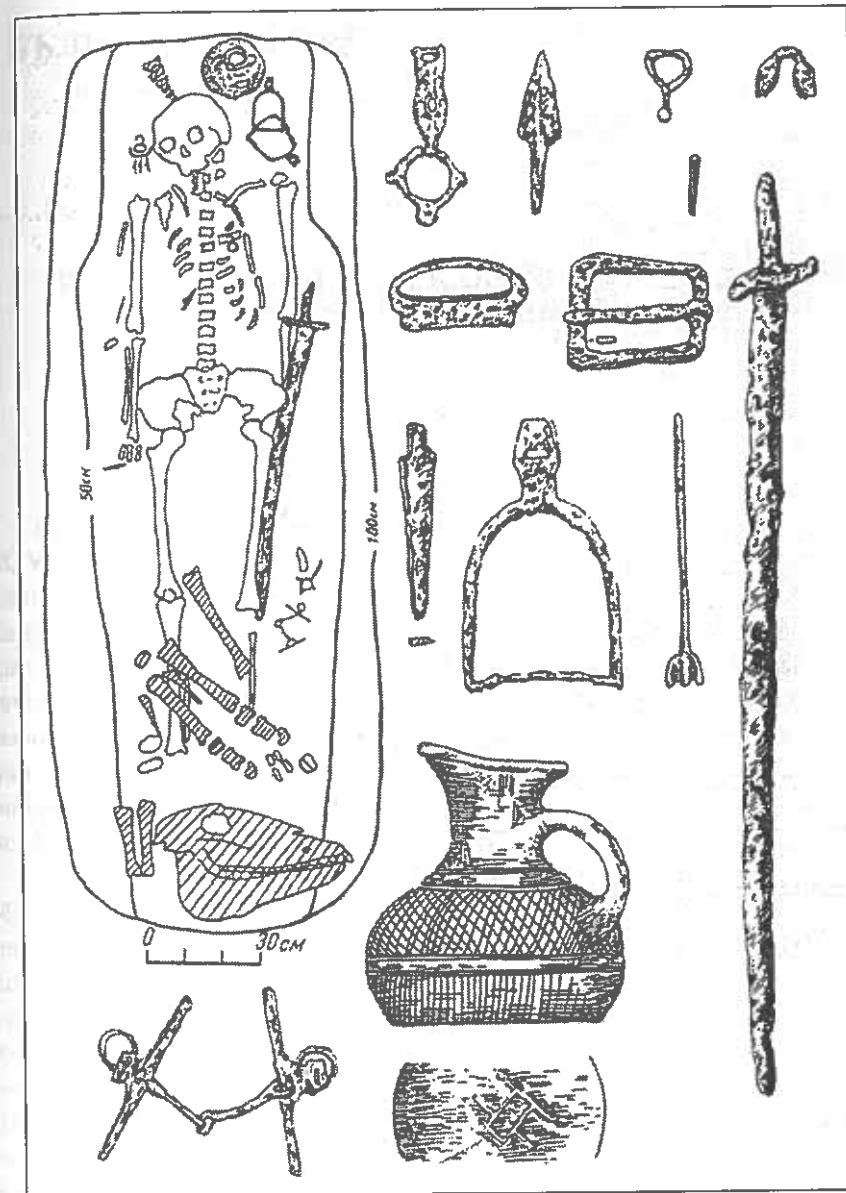 50см
100см
0 30см